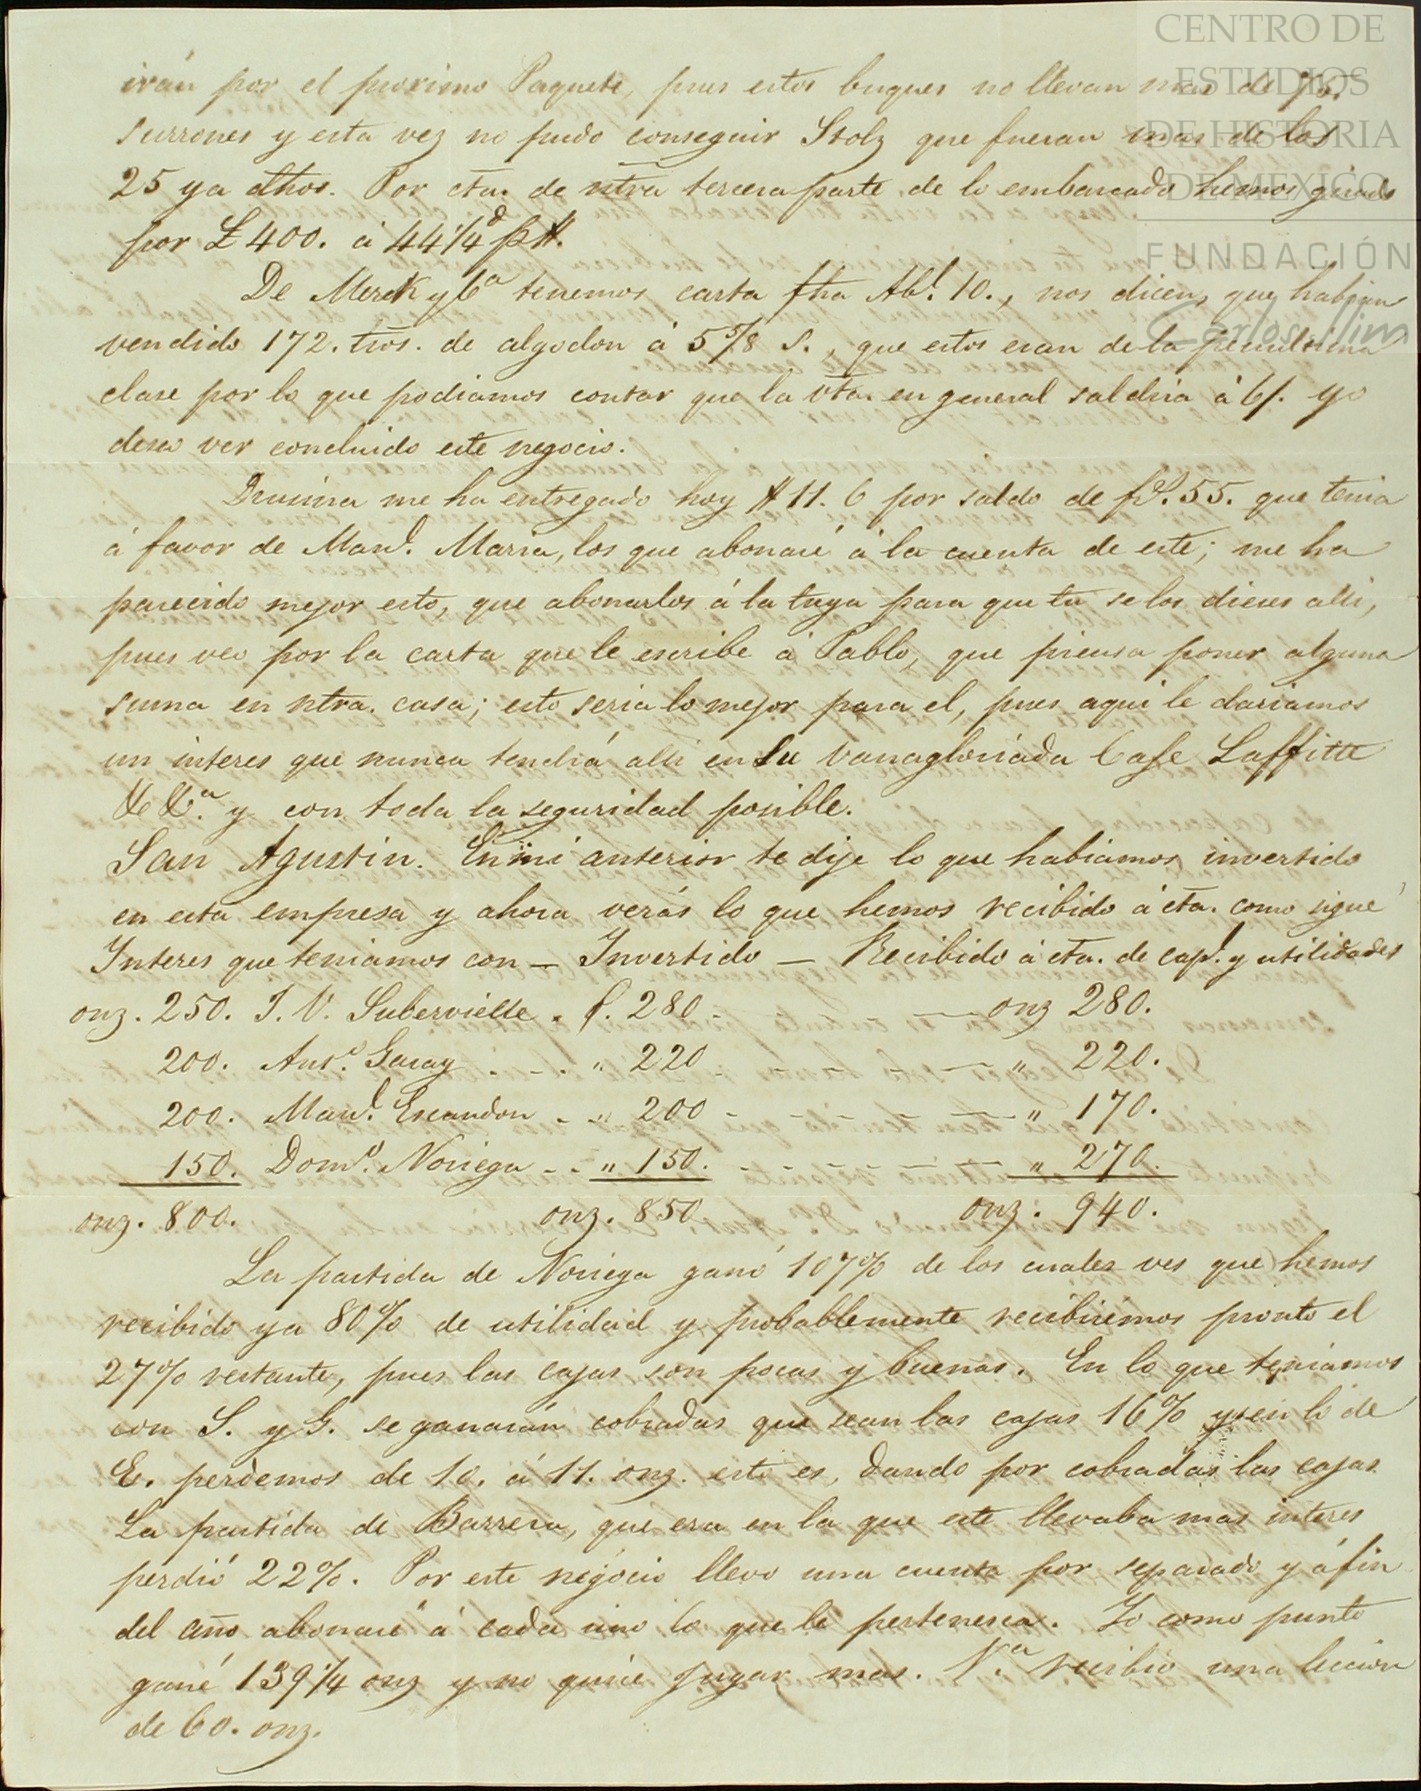 CENTRO DE
ESTUDIOS
DE HISTORIA
DE MEXICO
FUNDACIÓN
Carlos Slim
irán por el proximo Paquete, pues estos buques no llevan mas de
surrones y esta vez no pudo conseguir Stolz que fueran mas de los
25 ya dhos. Por cta. de ntra tercera parte de lo embarcado hemos girado
por £ 400. á 44 1/4 d p $.
De Merck y Ca tenemos carta fha Abl. 10., nos dicen, que habian
vendido 172. tros. de algodon á 5 5/8 S., que estos eran de la
clase por lo que podiamos contar que la vta. en general saldria á 6/. yo
deseo ver concluido este negocio.
me ha entregado hoy $ 11. 6 por saldo de fs. 55. que tenia
á favor de Manl. Maria, los que abonaré á la cuenta de este; me ha
parecido mejor esto, que abonarlos á la tuya para que tu se los dieses alli,
pues veo por la carta que le escribe á Pablo, que piensa poner alguna
suma en ntra. casa; esto seria lo mejor para el, pues aqui le dariamos
un interes que nunca tendrá alli en su vanagloriada Casa Laffitte
& Ca. y con toda la seguridad posible.
San Agustin. En mi anterior te dije lo que habiamos invertido
en esta empresa y ahora verás lo que hemos recibido á cta. como sigue
Interes que teniamos con — Invertido — Recibido á cta. de capl. y utilidades
onz. 250. J. V. Subervielle . f. 280 . — onz 280.
200. Anto. Garay . - . " 220 . — " 220.
200. Manl. Escandon . . " 200 - - - - - — " 170.
150. Domo. Noriega - - " 150. - - - - - — " 270.
onz. 800. onz. 850 onz. 940.
La partida de Noriega ganó 107% de los cuales ves que hemos
recibido ya 80% de utilidad y probablemente recibiremos pronto el
27% restante, pues las cajas son pocas y buenas. En lo que teniamos
con S. y G. se ganarán cobradas que sean las cajas 16% y en lo de
E. perdemos de 10. á 11. onz. esto es, dando por cobradas las cajas.
La partida de Barrera, que era en la que este llevaba mas interes
perdió 22%. Por este negocio llevo una cuenta por separado y á fin
del año abonaré á cada uno lo que le pertenesca. Yo como punto
gané 139 1/4 onz y no quise jugar mas. Va. recibio una leccion
de 60. onz.